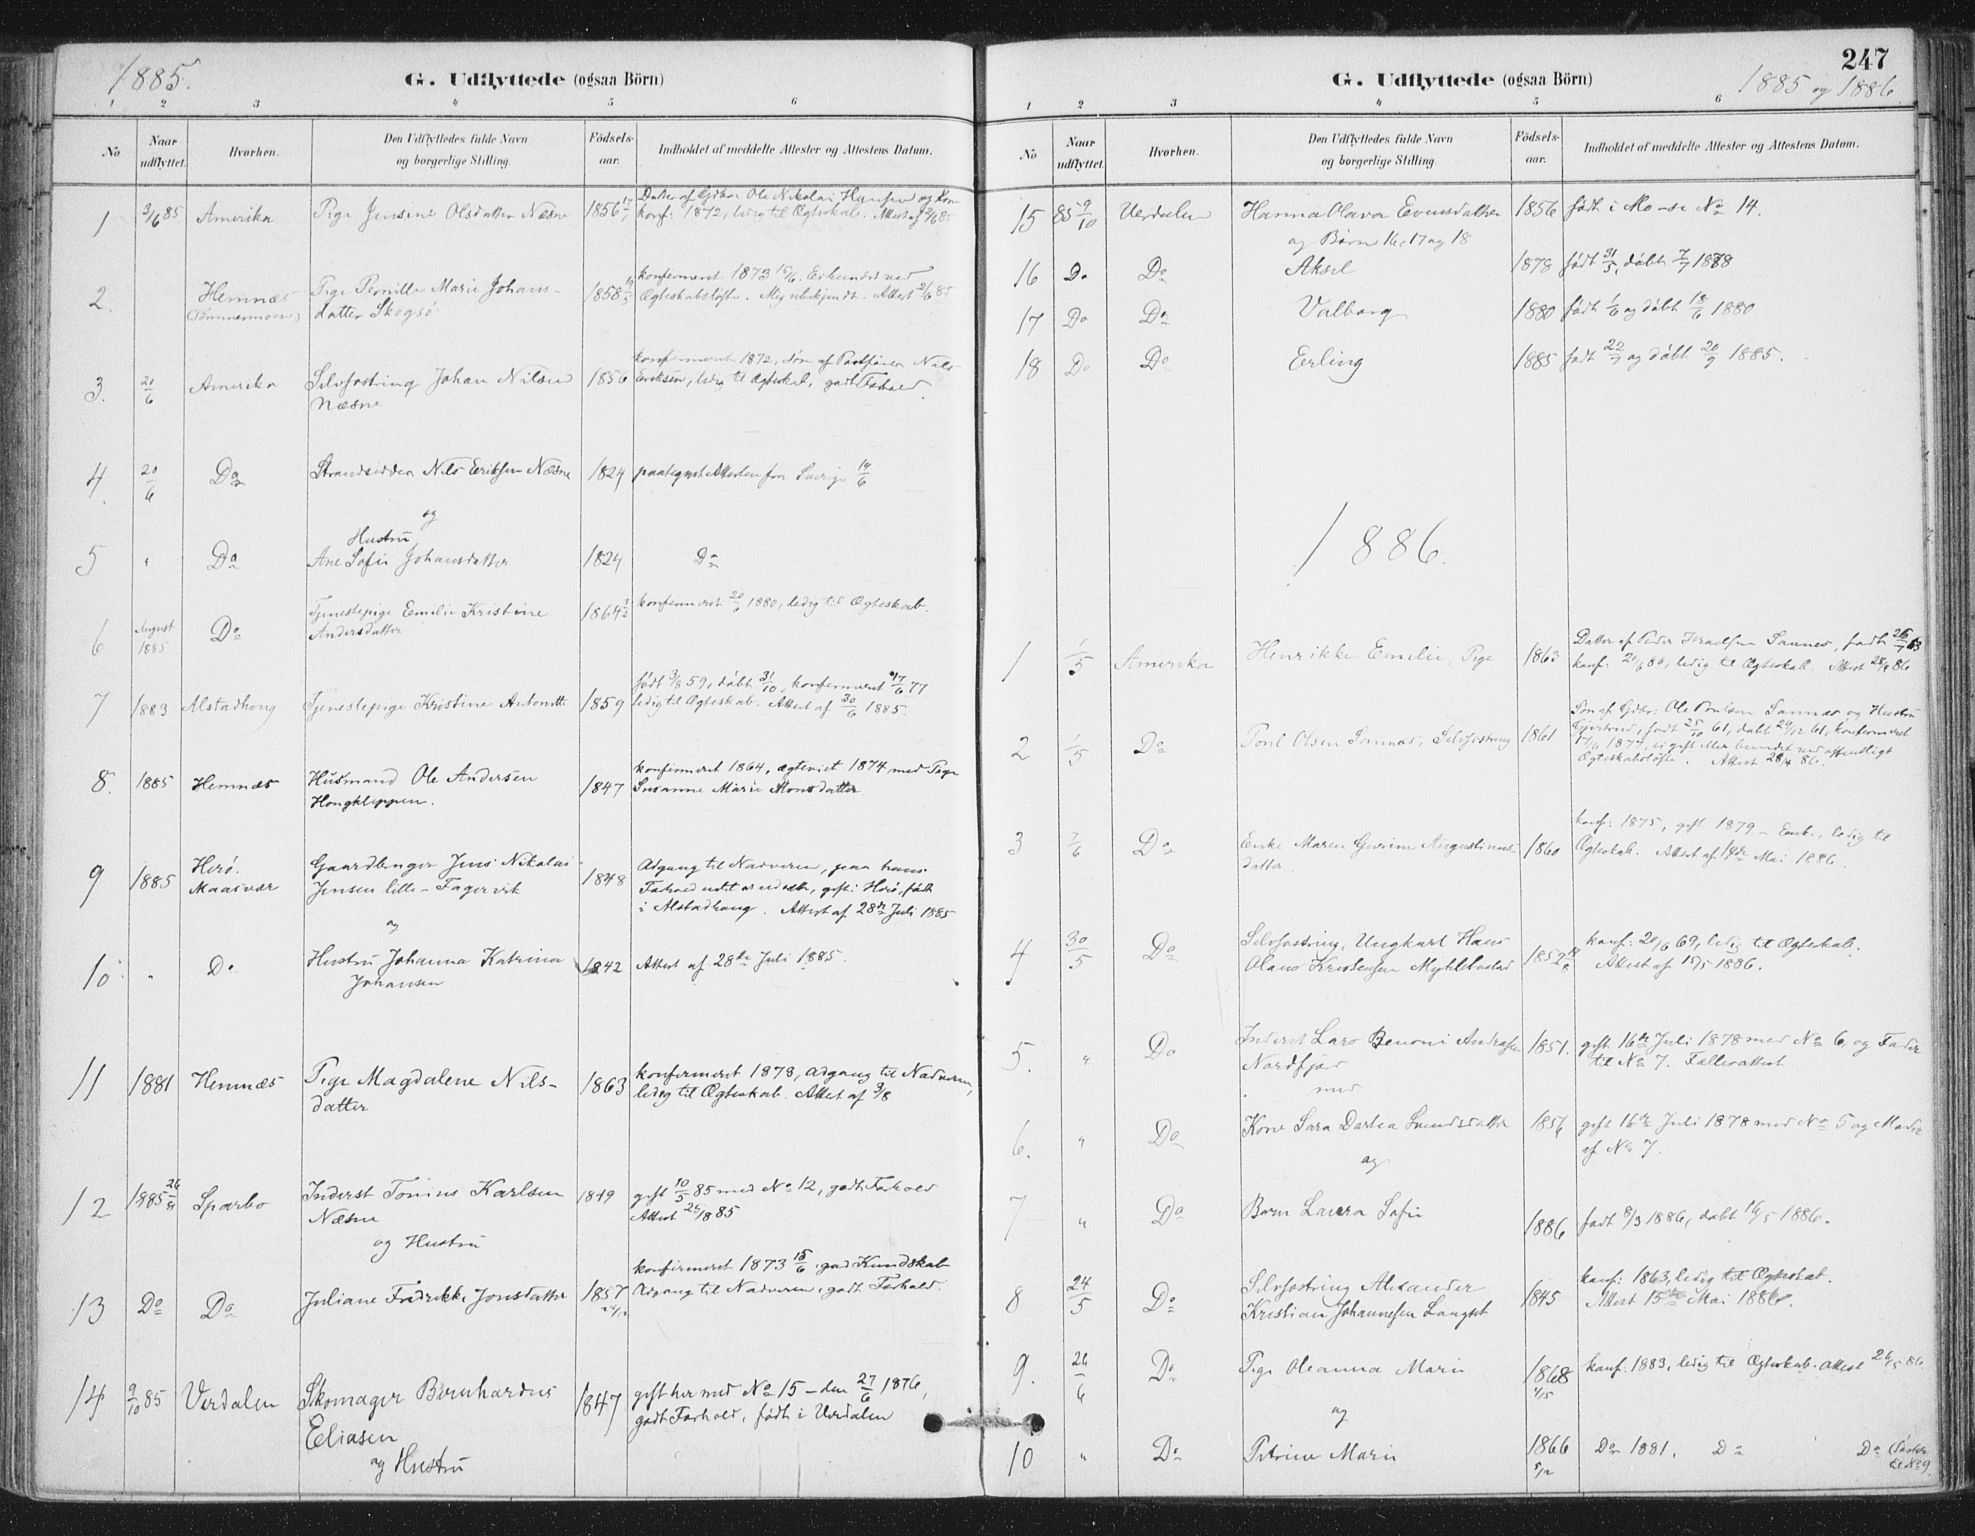 1885.
G. Udflyttede (ogsaa Börn)
1 2 3 4 5 6
No
Naar udflyttet.
Hvorhen.
Den Udflyttedes fulde Navn
og borgerlige Stilling.
Födsels-
aar.
Indholdet af meddelte Attester og Attestens Datum.
1 3/6 85 Amerika Pige Jensine Olsdatter Næsne 1856
Datter af Gdbr. Ole Nikolai
konf: 1872, ledig til Ægteskab.
2. Hemnæs Pige Pernille Marie Johans-
datter Skogsø 1858
konfirmeret 1873 15/6. Ubundet ved
Ægteskabsløfte.
3. 20/6 Amerika Selvfostring Johan Nilsen
Næsne 1856
konfirmeret 1872, Søn af Nils
Eriksen, ledig til Ægteskab, godt Forhold.
4. 20/6 Do Strandsidder Nils Eriksen Næsne 1824 paategnet Attesten fra Sverige 14/6
og
Hustru
5 " Do Ane Sofie Johansdatter 1824 Do
6 August
1885 Do Tjenestepige Emilie Kristine
Andersdatter 1864 konfirmeret 1880, ledig til Ægteskab.
7 1883 Alstadhoug Tjenestepige Kristine Antonette 1859
født 3/8 59, døbt 31/10, konfirmeret 17/6 77
ledig til Ægteskab. Attest af 30/6 1885.
8. 1885 Hemnæs Husmand Ole Andersen
Hongkleppen. 1847
konfirmeret 1864, ægteviet 1874 med Pige
Susanne Marie Monsdatter
9 1885 Herø.
Maasvær
Gaardbruger Jens Nikolai
Jensen lille-Fagervik 1848
Adgang til Nadveren, paa hans
Forhold, gift i Herø, født
i Alstadhaug. Attest af 28de Juli 1885
og
10 " Do Hustru Johanna Katrina
Johansen 1842 Attest af 28de Juli 1885.
11 1881 Hemnæs Pige Magdalene Nils-
datter 1863
konfirmeret 1878, adgang til Nadveren,
ledig til Ægteskab. Attest af 3/8
12 1885 Sparbo Inderst Tonius Karlsen
Næsne 1849
gift 10/5 85 med No 12, godt Forhold
Attest 26/8 85
og Hustru
13 Do Do Juliane Fredrikke Jonsdatter 1857
konfirmeret 1873 15/6, god Kundskab
Adgang til Nadveren, godt Forhold.
14 9/10 85 Verdalen Skomager Bernhardus
Eliasen
og Hustru 1847
gift her med No 15 – den 27/6 1876,
godt Forhold, født i Verdalen
247
G. Udflyttede (ogsaa Börn)
1885 og 1886
1 2 3 4 5 6
No
Naar
udflyttet.
Hvorhen.
Den Udflyttedes fulde Navn
og borgerlige Stilling.
Födsels-
aar.
Indholdet af meddelte Attester og Attestens Datum.
15 85 9/10 Verdalen Hanna Olava Evensdatter 1856 født i Mo – se No 14.
og Børn 16, 17 og 18
16 Do Do Aksel 1878 født 31/5, døbt 7/7 1878
17 Do Do Valborg 1880 født 1/6 og døbt 18/6 1880
18 Do Do Erling 1885 født 22/7 og døbt 20/9 1885.
1886.
1 1/5 Amerika Henrikke Emilie, Pige 1863
Datter af Peder Sannes, født
ledig til Ægteskab. Attest 28/4 86
2 1/5 Do Poul Olsen Sannes, Selvfostring 1861
Søn af Gdbr: Ole Poulsen Sannes og Hustru
født 25/10 61, døbt 29/12 61, konfirmeret
1877, ei gift eller bundet ved offentligt
Ægteskabsløfte. Attest 28/4 86.
3 7/6 Do Enke Maren Augustinus-
datter 1860
konf: 1875, gift 1879 – Enke, ledig til
Ægteskab. Attest af Mai 1886.
4 30/5 Do Selvfostring, Ungkarl Hans
Olaus Kristensen 1852
konf: 20/6 69, ledig til Ægteskab.
Attest af 15/5 1886.
5. " Do Inderst Lars Benoni Andersen
Nordfjord
med 1851.
gift 16de Juli 1878 med No 6, og Fader
til No 7. Fællesattest
6. " Do Kone Sara Dortea
og 1856
gift 16de Juli 1878 med No 5 og Moder
af No 7.
7 " Do Barn Laura Sofie 1886 født 8/3 1886, døbt 16/5 1886.
8 24/5 Do Selvfostring Alexander
Kristian Johannesen Langset 1845
konf: 1863, ledig til Ægteskab.
Attest 15de Mai 1886.
9. 26/6 Do Pige Oleanna Marie 1868 konf: 1883, ledig til Ægteskab. Attest 26/5 86
og
10 " Do Petrine Marie 1866 Do 1881. Do Do (Søster
til No 9.